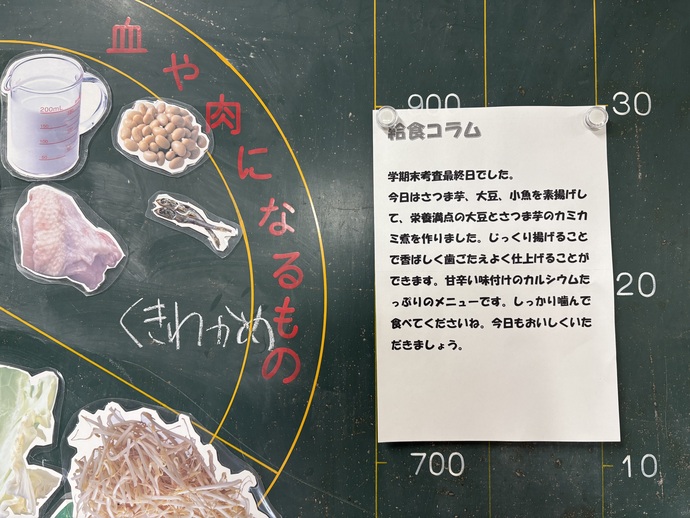 血や肉になるもの
200mL
くきわかめ
900
30
20
700
10
給食コラム
学期末考査最終日でした。
今日はさつま芋、大豆、小魚を素揚げし
て、栄養満点の大豆とさつま芋のカミカ
ミ煮を作りました。じっくり揚げること
で香ばしく歯ごたえよく仕上げることが
できます。甘辛い味付けのカルシウムた
っぷりのメニューです。しっかり噛んで
食べてくださいね。今日もおいしくいた
だきましょう。